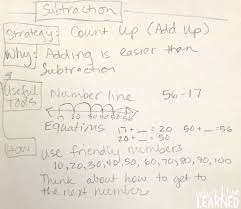 Subtraction
Strategy: Count Up (Add Up)
Why: Adding is easier than
Subtraction
Useful Tools
Number line 56-17
Equations 17 + _ = 20 50 + _ = 56
20
How use friendly numbers
10, 20, 30, 40, 50, 60, 70, 80, 90, 100
Think about how to get to
the next number
LEARNED